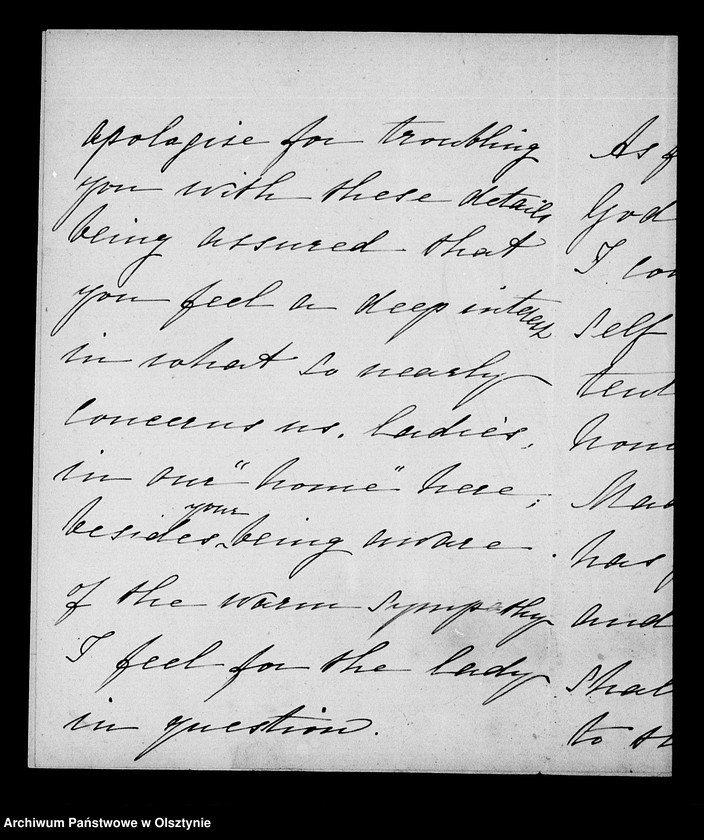 apologise for troubling
you with these details
being assured that
you feel a deep interest
in what so nearly
concerns us. ladies,
in our "home" here;
besides your being aware
of the warm sympathy
I feel for the lady
in question.
As
God
I
self
and
to
Archiwum Państwowe w Olsztynie